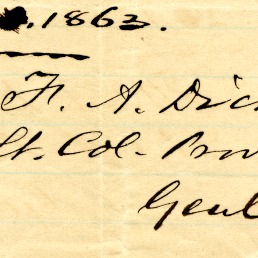 .1863.
F. A. Dic
Lt. Col. Prov
Genl